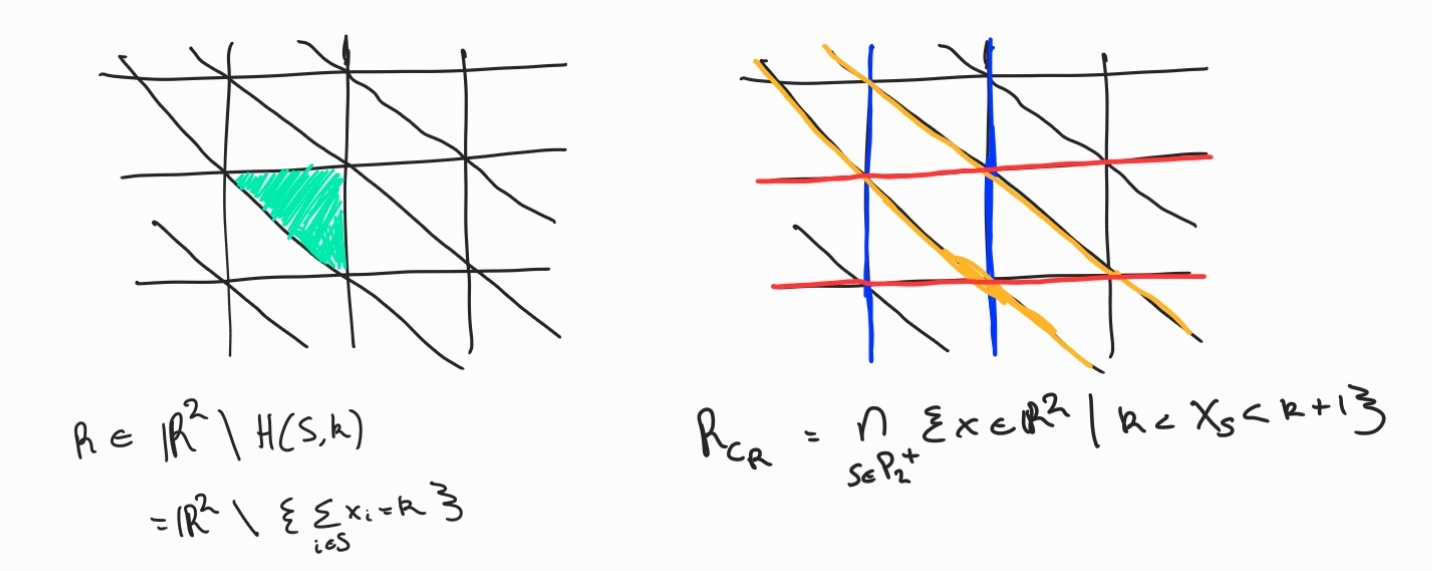 R ∈ ℝ² \ H(S,k)
= ℝ² \ { ∑_{i∈S} x_i = k }
R_{C_R} = ∩_{S∈P₂⁺} { x ∈ ℝ² | k < X_S < k+1 }